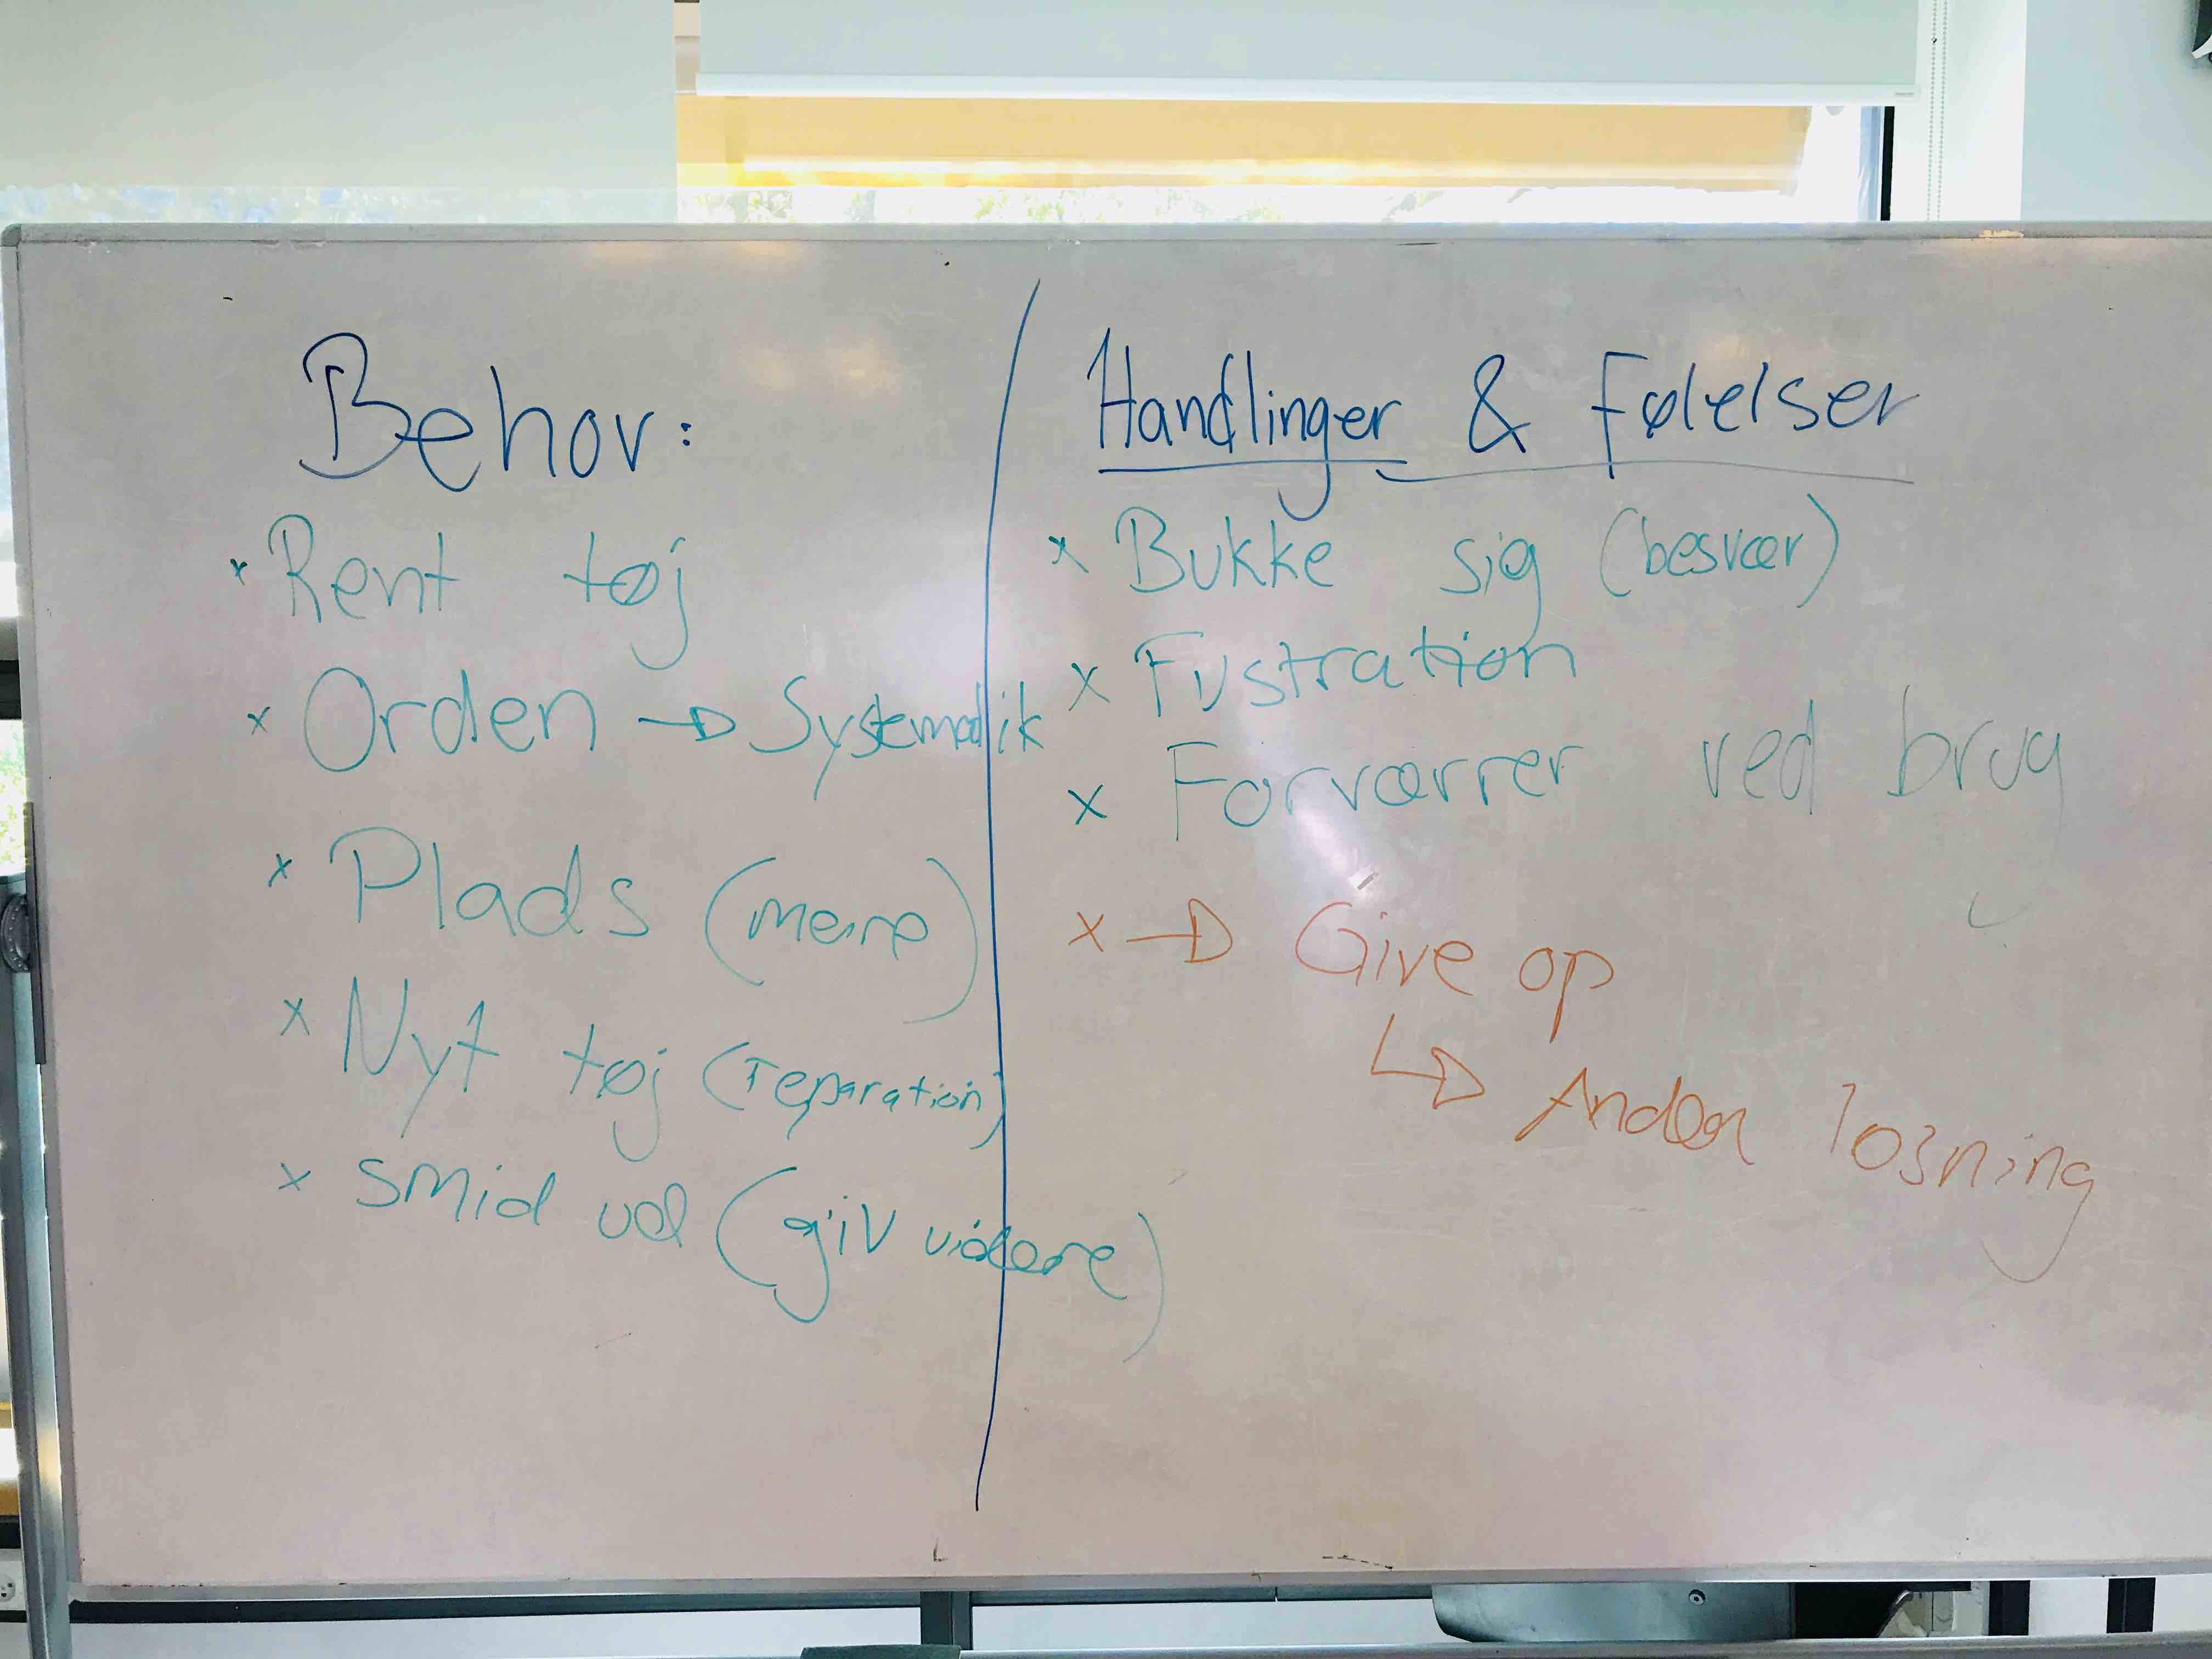 Behov:
x Rent tøj
x Orden → Systematik
x Plads (mere)
x Nyt tøj (reparation)
x Smid ud (giv videre)
Handlinger & Følelser
x Bukke sig (besvær)
x Fustration
x Forværrer ved brug
x → Give op
↳ Anden losning